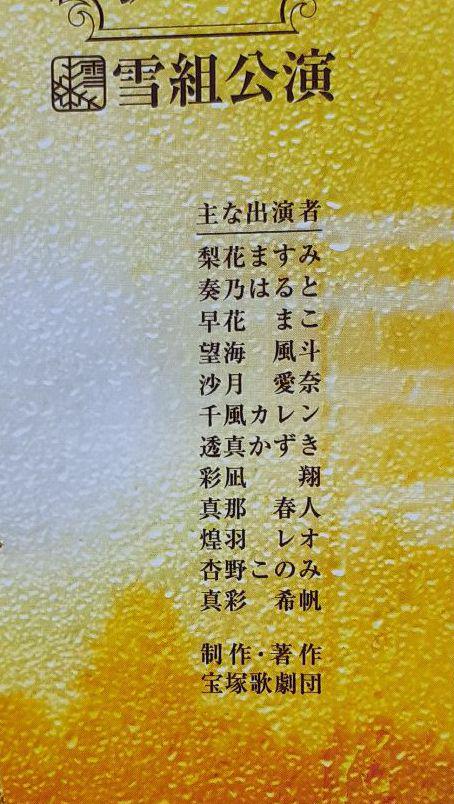 雪組公演
主な出演者
梨花ますみ
奏乃はると
早花まこ
望海風斗
沙月愛奈
千風カレン
透真かずき
彩凪翔
真那春人
煌羽レオ
杏野このみ
真彩希帆
制作・著作
宝塚歌劇団